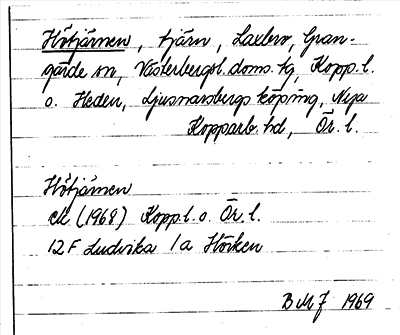 Hötjärnen, tjärn, Laxbro, Gran-
gärde sn, Västerbergsl. doms. tg, Kopp. l.
o. Heden, Ljusnarsbergs köping, Nya
Kopparb. hd, Ör. l.
Hötjärnen
ek. (1968) Kopp. l. o. Ör. l.
12F Ludvika 1a Hörken
BMJ 1969